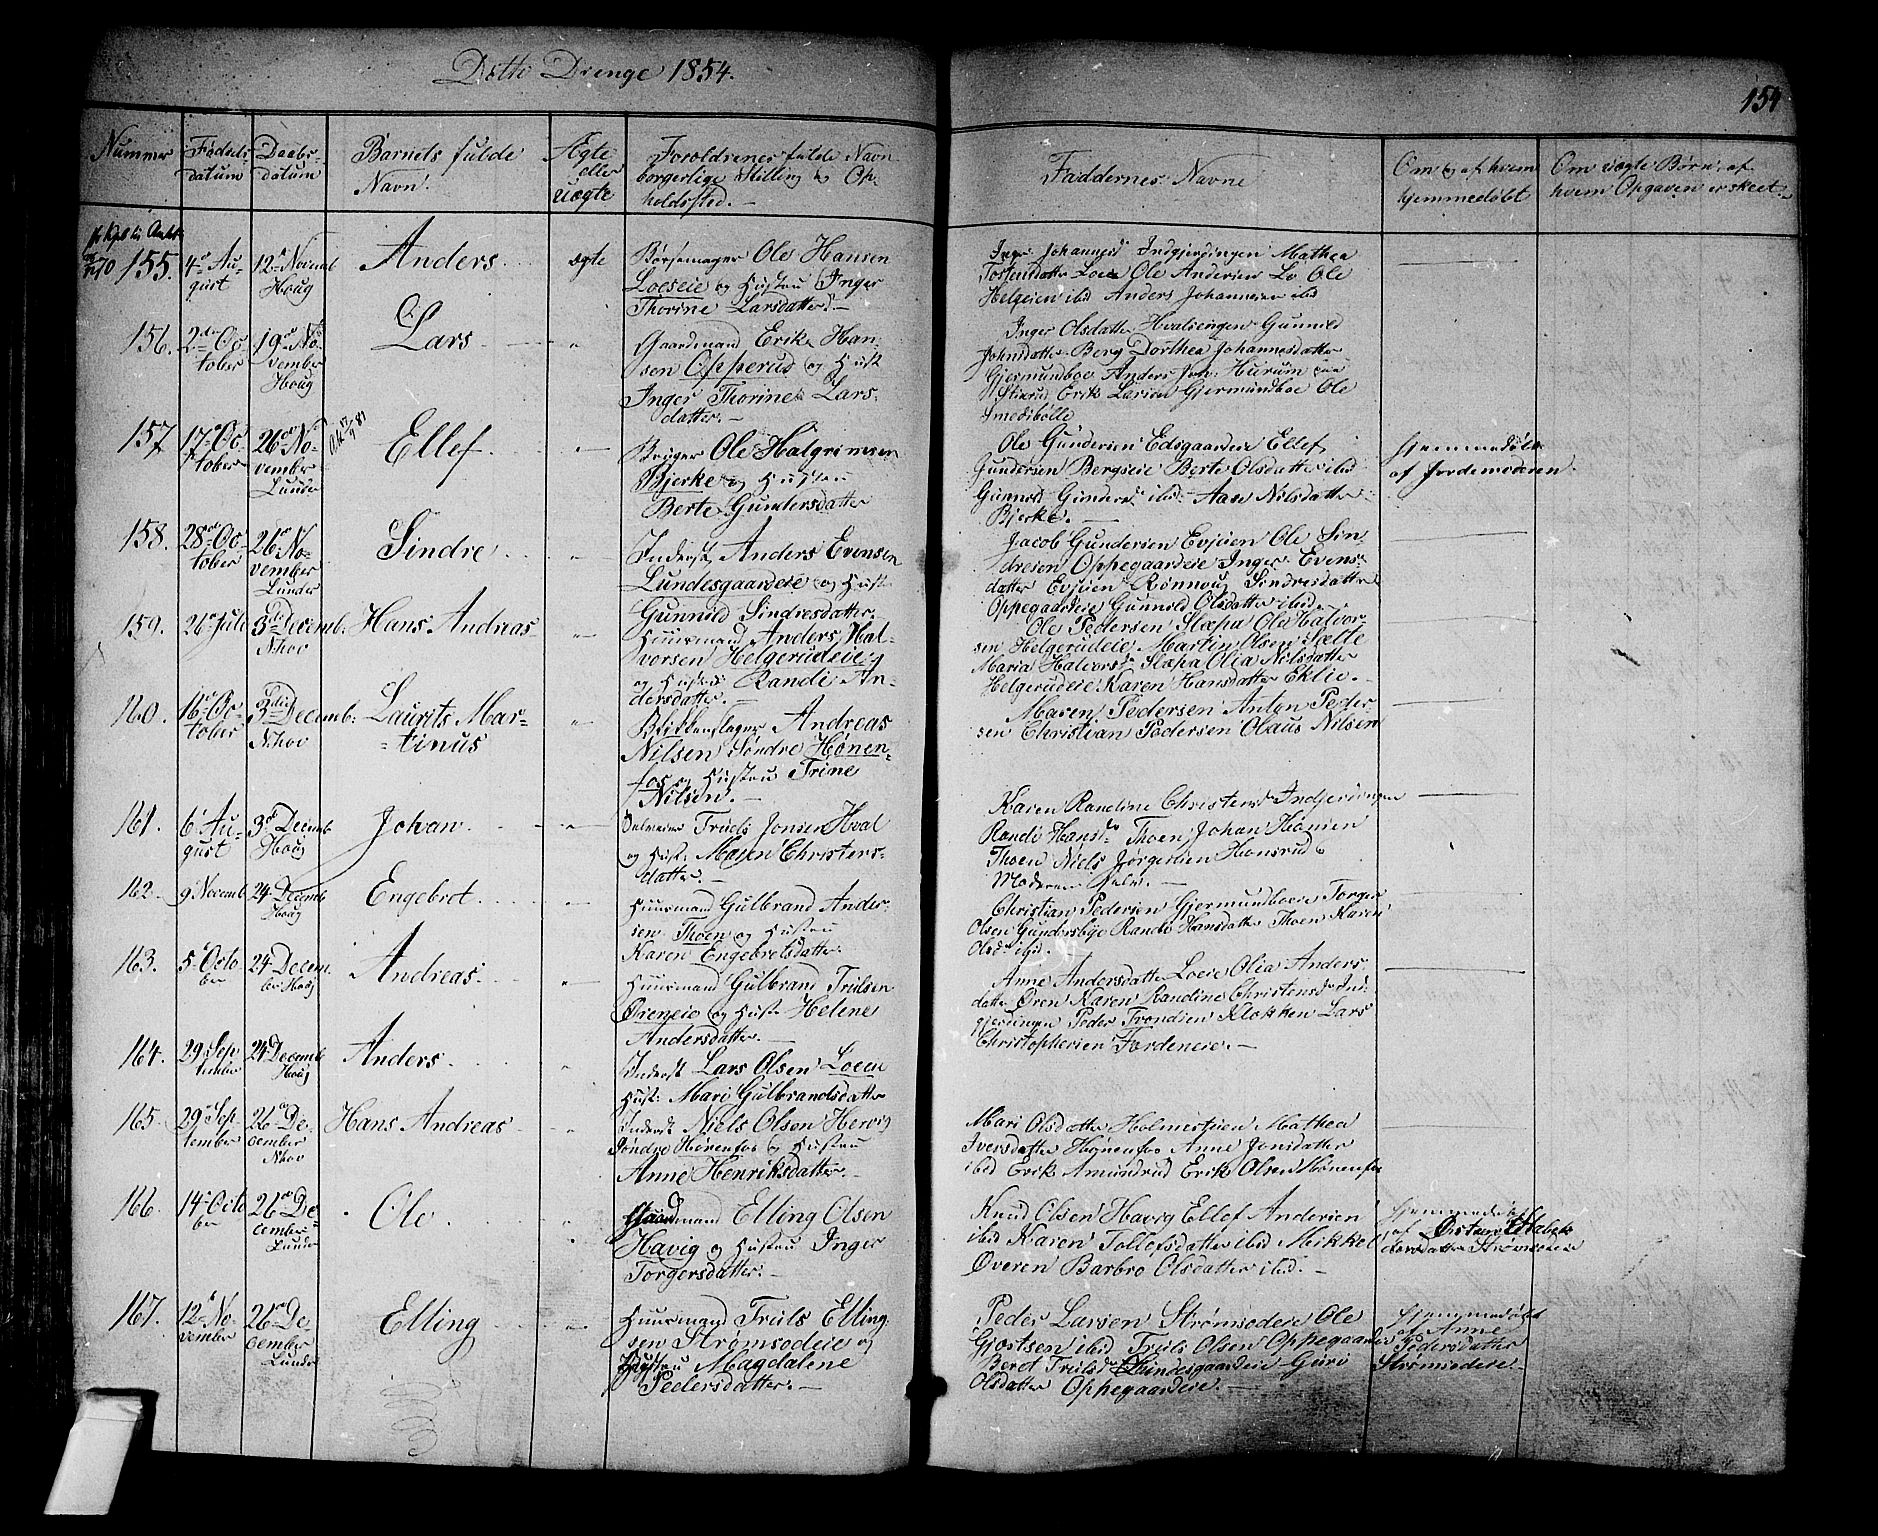 Ditto Drenge 1854.
154
Nummer
Fødsels-
datum
Daabs-
datum
Barnets fulde
Navn.
Ægte
eller
uægte
Foreldrenes fulde Navn
borgerlige Stilling og Op-
holdssted.
Faddernes Navne
Om og af hvem
hjemmedøbt
Om uægte Børn, af
hvem Opgaven er skeet.
155.
4de Au-
gust
12te Novemb
Houg
Anders
ægte
Børsemager Ole Hansen
Loeseie og Hustru Inger
Thorine Larsdatter.
Johannesd Indgjerdingen Mathea
Tostensdatter Loe Ole Andersen Lo Ole
Helgeien ibid Anders Johannesen ibid
156.
2den Oc-
tober
19de No-
vember
Houg
Lars
Gaardmand Erik Han-
sen Opperud og Hust
Inger Thorine Lars-
datter.
Inger Olsdatter Hvalsengen Gunnild
Johnsdatter Berg Dorthea Johannesdatter
Gjermundboe Anders Jon: Hurum
Erik Larsen Gjermundboe Ole
Smedsbølle
157
17de Oc-
tober
26de No-
vember
Lunder
Ellef
Ole Halgrimsen
Bjerke og Hustru
Berte Gundersdatter
Ole Gundersen Edsgaardeie Ellef
Gundersen Bergseie Berte Olsdatter ibid
Gunnild Gundersd ibid Aase Nilsdatter
Bjerke.
Hjemmedøbt
af Jordemoderen.
158.
28de Oc-
tober
26de No-
vember
Lunder
Sindre
Inderst Anders Evensen
Lundesgaardeie og Hust
Gunnild Sindresdatter.
Jacob Gundersen Evjuen Ole Sin-
dresen Oppegaardeie Inger Evens-
datter Evjuen Rønnoug Sindresdatter
Oppegaardeie Gunnild Olsdatter ibid.
159.
26de Juli
3die Decemb.
N.hov
Hans Andreas
Huusmand Anders Hal-
vorsen Helgerudeie
og Hustru Randi An-
dersdatter.
Ole Pedersen Slæpa Ole Halvor-
sen Helgerudeie Martin Olsen Sætte
Maria Halvorsd Slæpa Olia Nilsdatter
Helgerudeie Karen Hansdatter Eklie.
160.
16de Oc-
tober
3die Decemb:
N.hov
Laurits Mar-
tinus
Blikkenslager Andreas
Nilsen Søndre Hønen-
fos og Hustru Trine
Nilsen.
Maren Pedersen Anton Peder-
sen Christian Pedersen Olaus Nilsen
161.
6te Au-
gust
3de Decemb
Houg
Johan
Truls Jonsen Hval
og Hust: Maren Christens-
datter.
Karen Randine Christensd Indgjerdingen
Randi Hansd. Thoen Johan Hansen
Thoen Niels Jørgensen Honsrud
Moderen selv.
162.
9 Novemb
24 Decemb
Houg
Engebret
Huusmand Gulbrand Ander-
sen Thoen og Hustru
Karen Engebretsdatter.
Christian Pedersen Gjermundboeie Torger
Olsen Gundersbye Randi Hansdatter Thoen Karen
Olsd ibid.
163.
5te Octo
ber
24 Decem-
ber Houg
Andreas
Huusmand Gulbrand Trulsen
Øreneie og Hustr Helene
Andersdatter.
Anne Andersdatter Loeie Olia Anders-
datter Øren Karen Randine Christensd Ind-
gjerdingen Peder Trondsen Klokken Lars
Christophersen Fordeneie.
164.
29 Sep
tember
24 Decemb
Houg
Anders
Inderst Lars Olsen Loeen
Hust: Mari Gulbrandsdatter
165.
29 Sep-
tember
26de De-
cember
N.hov
Hans Andreas
Inderst Niels Olsen Hervig
Søndre Hønenfos og Hustru
Anne Henriksdatter.
Mari Olsdatter Holmeseien Mathea
Iversdatter Hønenfos Anne Jonsdatter
ibid Erik Amundrud Erik Olsen Hønenfos
166.
14de Octo
ber
26de De-
cember
Lunder
Ole
Gaardmand Elling Olsen
Havig og Hustru Inger
Torgersdatter.
Knud Olsen Havig Ellef Andersen
ibid Karen Tollefsdatter ibid Mikkel
Øveren Barbro Olsdatter ibid.
Hjemmedøbt
af
167.
12te No-
vember
26de De
cember
Lunder
Elling
Huusmand Truls Elling
sen Strømsodeie og
Hustru Magdalene
Pedersdatter.
Peder Larsen Strømsodeie Ole
Gjostsen ibid Truls Olsen Oppegaardeie
Beret Trulsd. Lundesgaardeie Guri
Olsdatter Oppegaardeie.
Hjemmedøbt
af Anne
Pedersdatter
Strømsodeie.